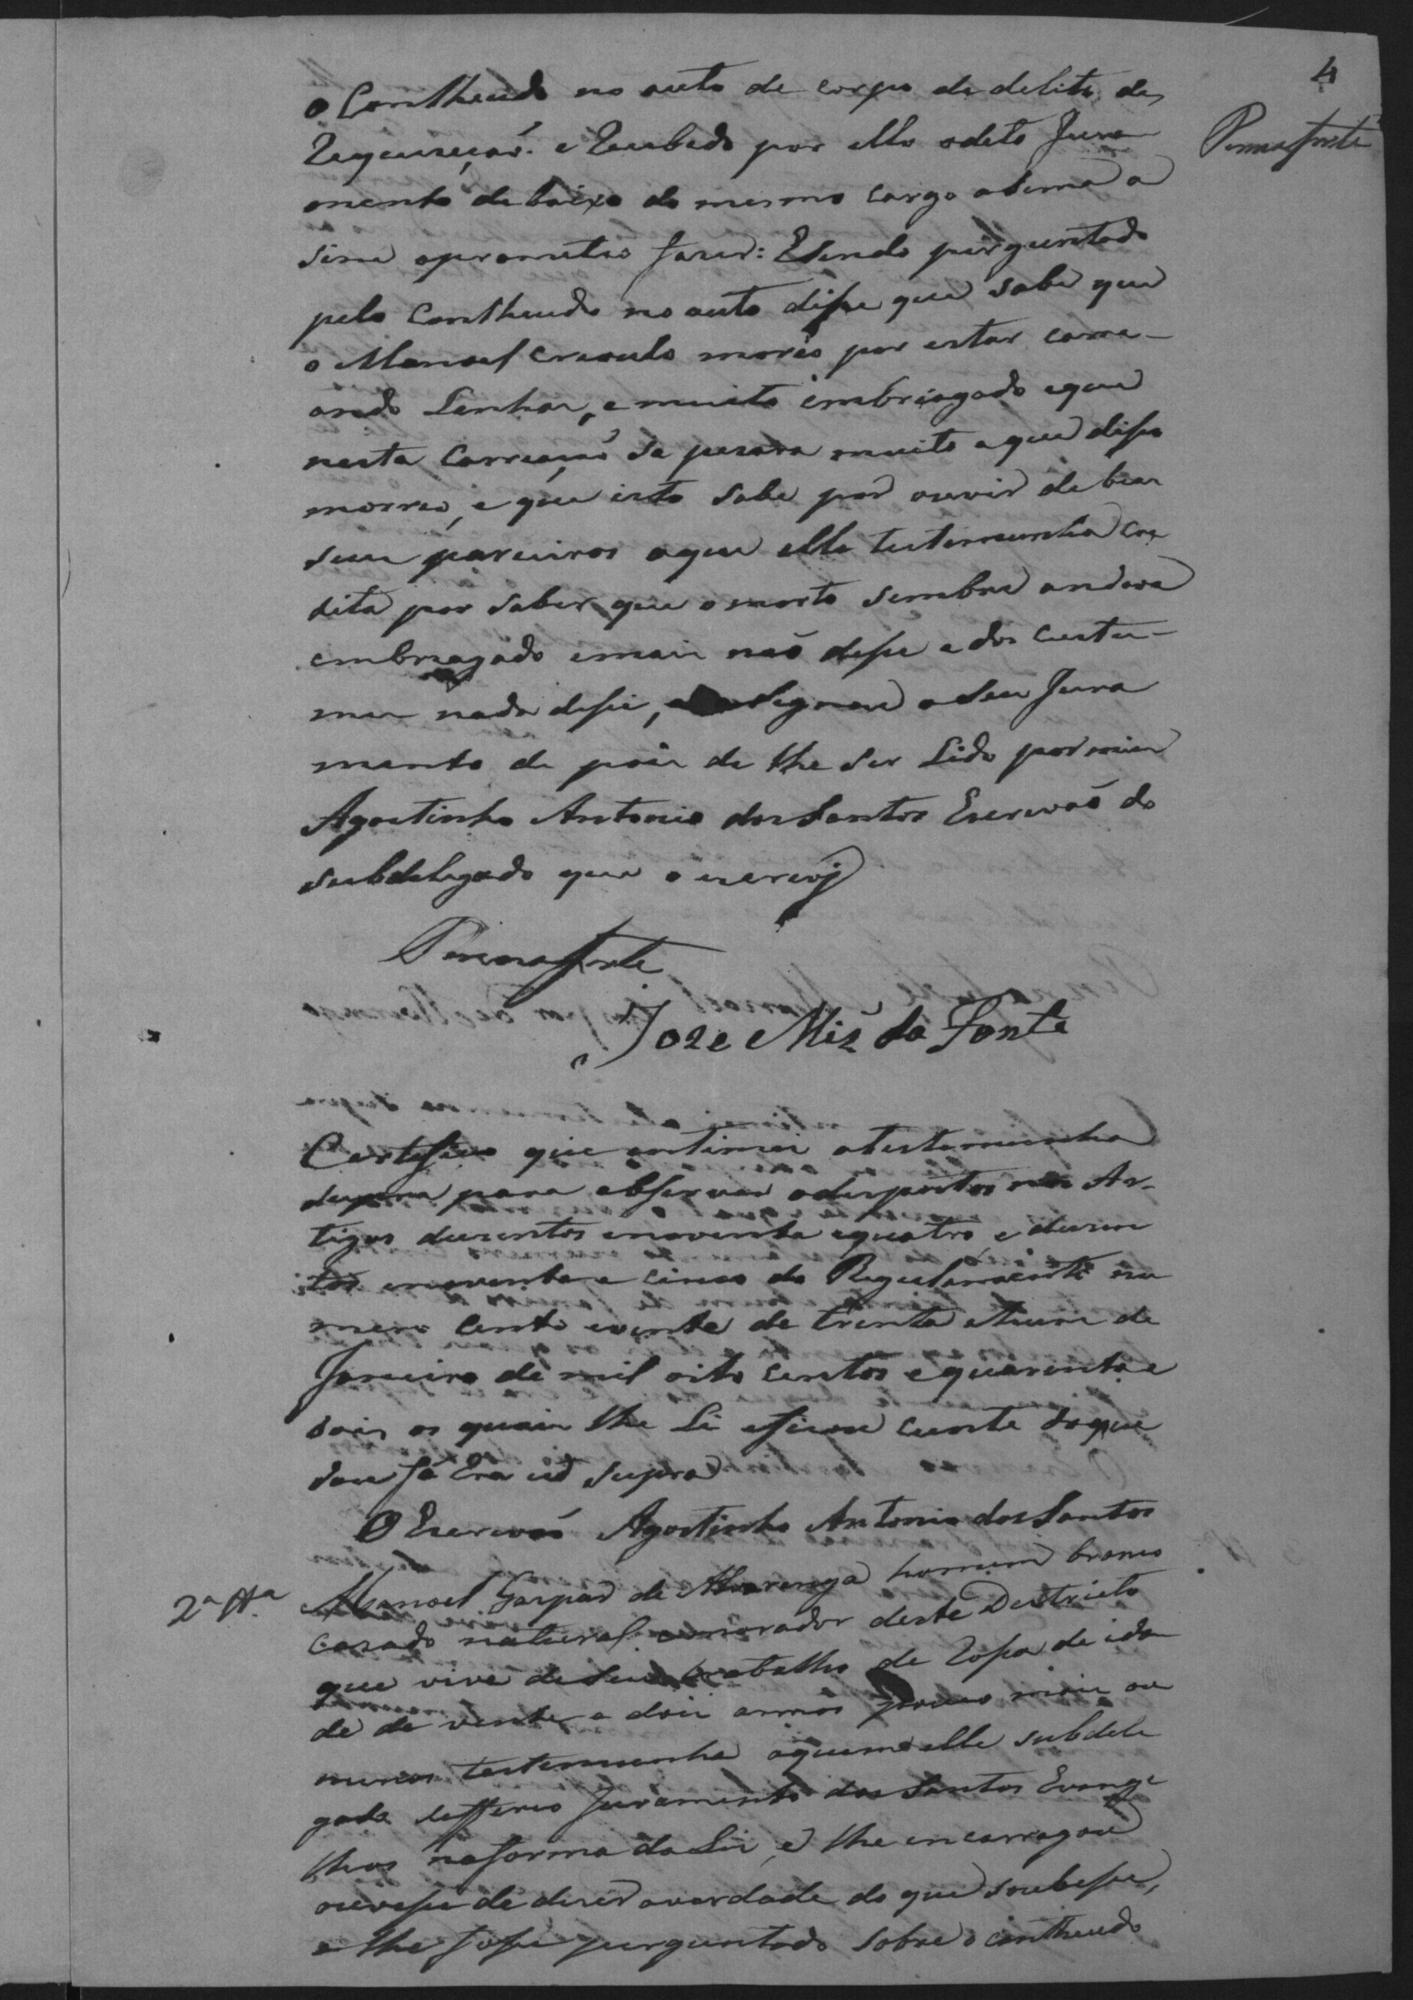 4
Pennaforte
o Contheudo no auto de corpo de delito de
e Recebido por elle o dito Jura
mento debaixo do mesmo cargo asima a
sim o prometeo faser: E sendo perguntado
pelo Contheudo no auto disse que sabe que
o Manoel Creoulo morêo por estar carre-
ando Lenha, e muito imbriagado e que
nesta se muito que disso
morreo, e que isto sabe por ouvir de
seus parceiros o que elle testemunha cre
dita por saber que o morto sembre andava
embriagado e mais naõ disse e dos custu-
mes nada disse, e asignou o seu Jura
mento de pois de lhe ser Lido por mim
Agostinho Antonio dos Santos Escrivaõ do
subdelegado que o escrevij
Pennaforte
Joze Miz da Fonte
Certifico que entimei a testemunha
supra para observar o desposto nos Ar-
tigos duzentos e noventa e quatro, e duzen
tos e noventa e cinco do Regulamento nu
mero cento e vente de trenta e hum de
Janeiro de mil oito centos e quarenta e
dois os quais lhe Li e ficou ciente do que
dou fé Era ut supra
O Escrivaõ Agostinho Antonio dos Santos
2ª Ttª Manoel Gaspar de Alvarenga homem branco
casado natural e morador deste Destricto
que vive de seu trabalho de Rossa de ida
de de vente e dois annos pouco mais ou
menos testemunha a quem elle subdele
gado defferio Juramento dos Santos Evange
lhos na forma da Lei, e lhe encarregou
ouvesse de diser a verdade do que soubesse,
e lhe fosse perguntado sobre o contheudo